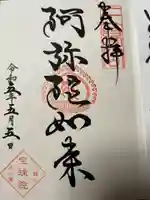 奉拝
阿弥陀如来
令和五年五月五日